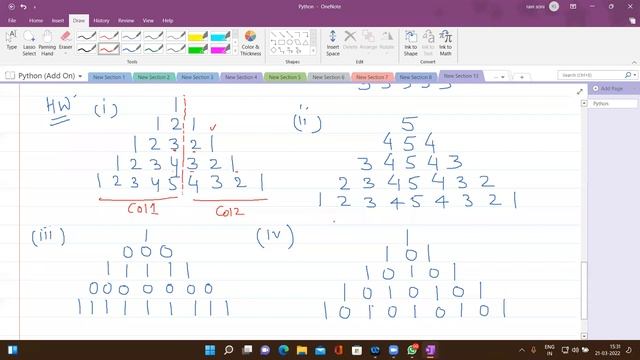 Python - OneNote
ram soni
RS
File Home Insert Draw View Help
Type
Lasso Select
Insert Space
Tools
Color & Thickness
Shapes
Ink to Shape
Ink to Math
Convert
Python (Add On)
New Section 1
New Section 2
New Section 3
New Section 4
New Section 5
New Section 6
New Section 7
New Section 8
New Section 9
New Section 10
Search (Ctrl+E)
Add Page
Python
HW
(i)
1
1 2 1
1 2 3 2 1
1 2 3 4 3 2 1
1 2 3 4 5 4 3 2 1
Col1 Col2
(ii)
5
4 5 4
3 4 5 4 3
2 3 4 5 4 3 2
1 2 3 4 5 4 3 2 1
(iii)
1
0 0 0
1 1 1 1 1
0 0 0 0 0 0 0
1 1 1 1 1 1 1 1 1
(iv)
1
1 0 1
1 0 1 0 1
1 0 1 0 1 0 1
1 0 1 0 1 0 1 0 1
ENG
IN
15:31
21-03-2022